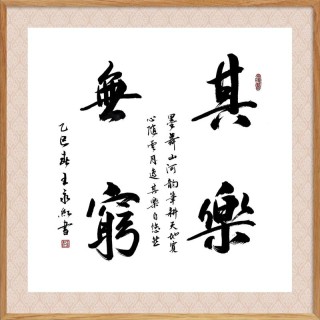 其樂
墨舞山河韵筆耕天地寬
心隨雲月遠其樂自悠然
無窮
乙巳春王永紅書